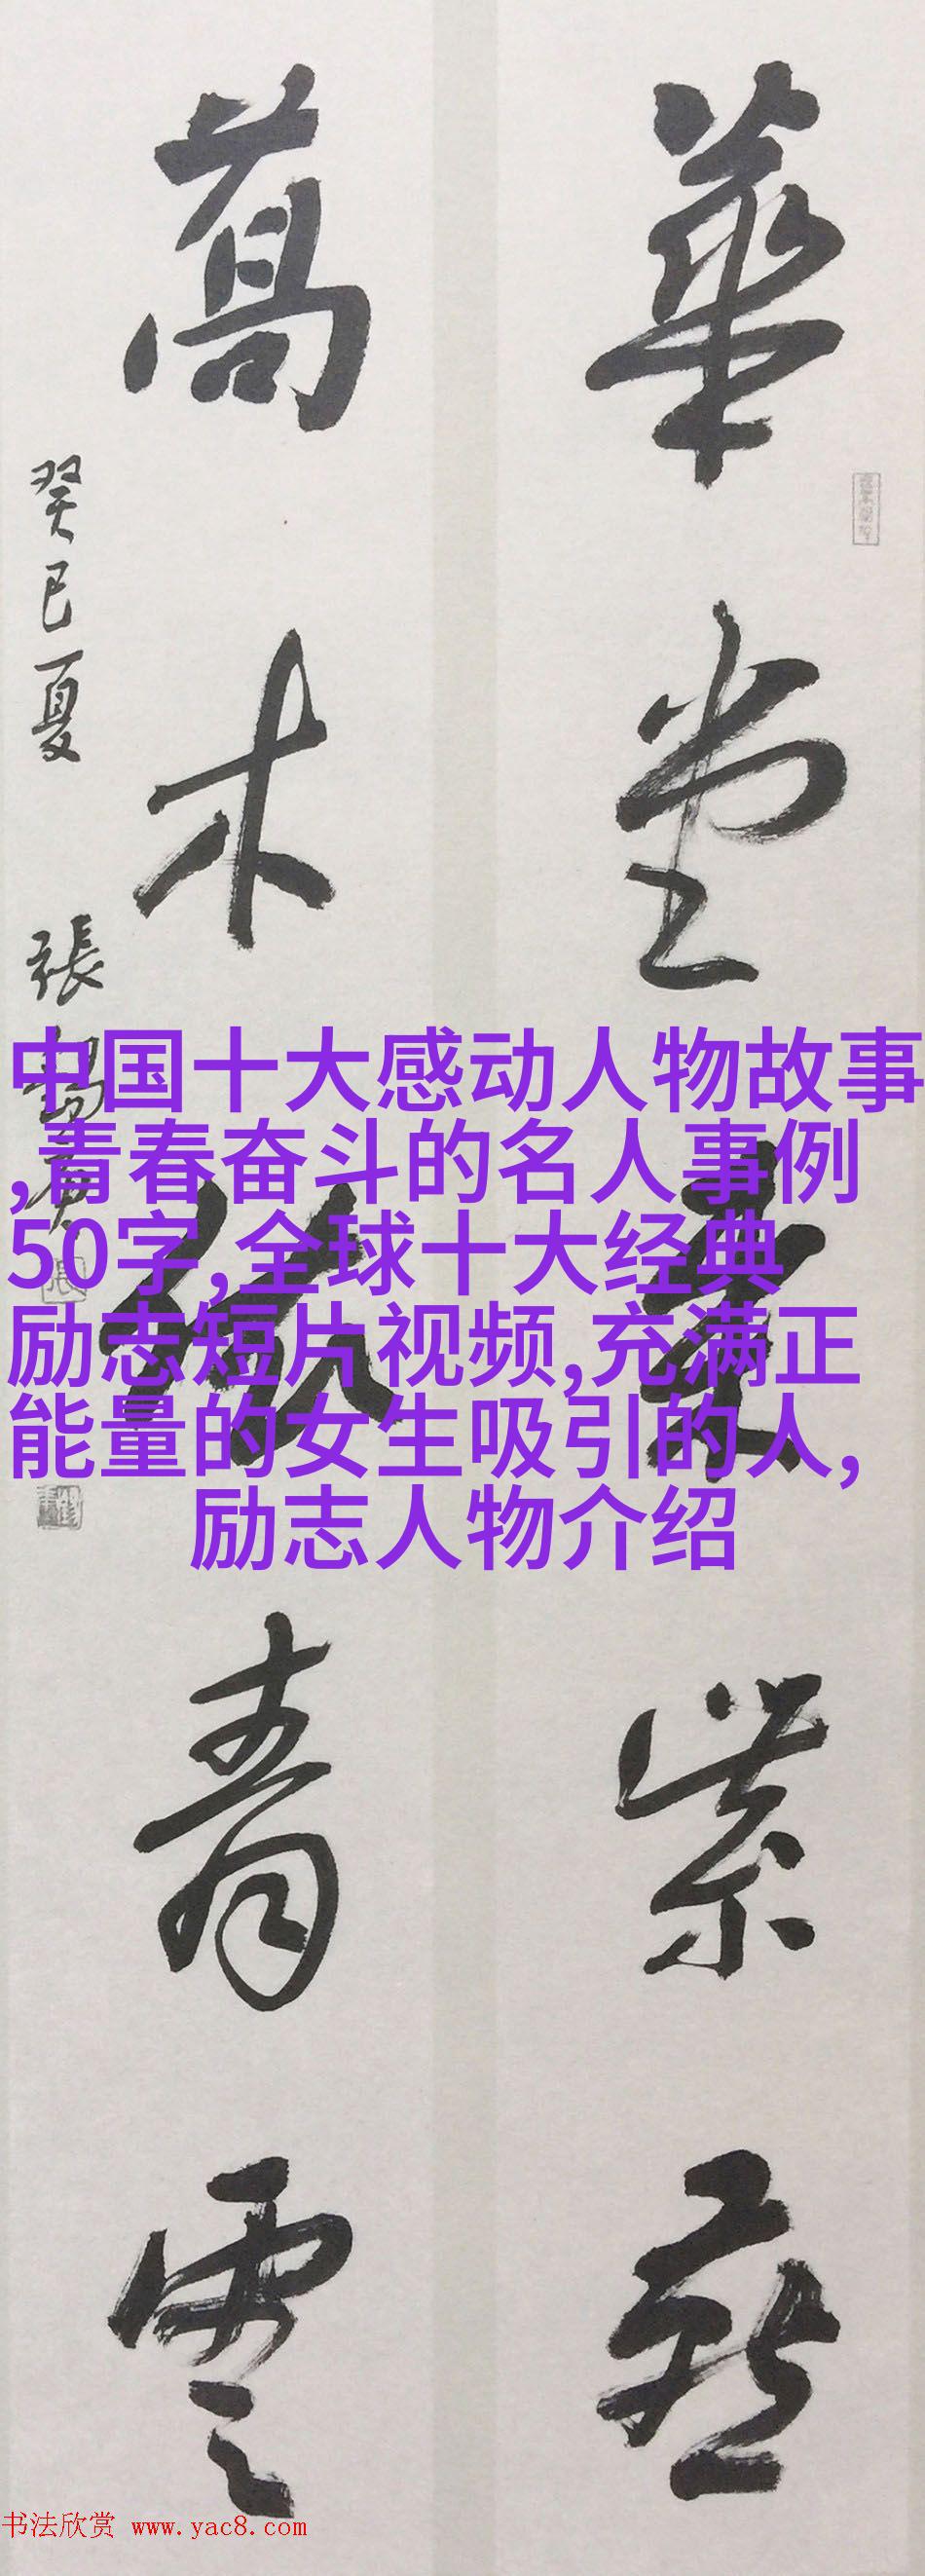 華堂來紫燕
萬木青雲
癸巳夏 張
中国十大感动人物故事
,青春奋斗的名人事例
50字,全球十大经典
励志短片视频,充满正
能量的女生吸引的人,
励志人物介绍
书法欣赏 www.yac8.com